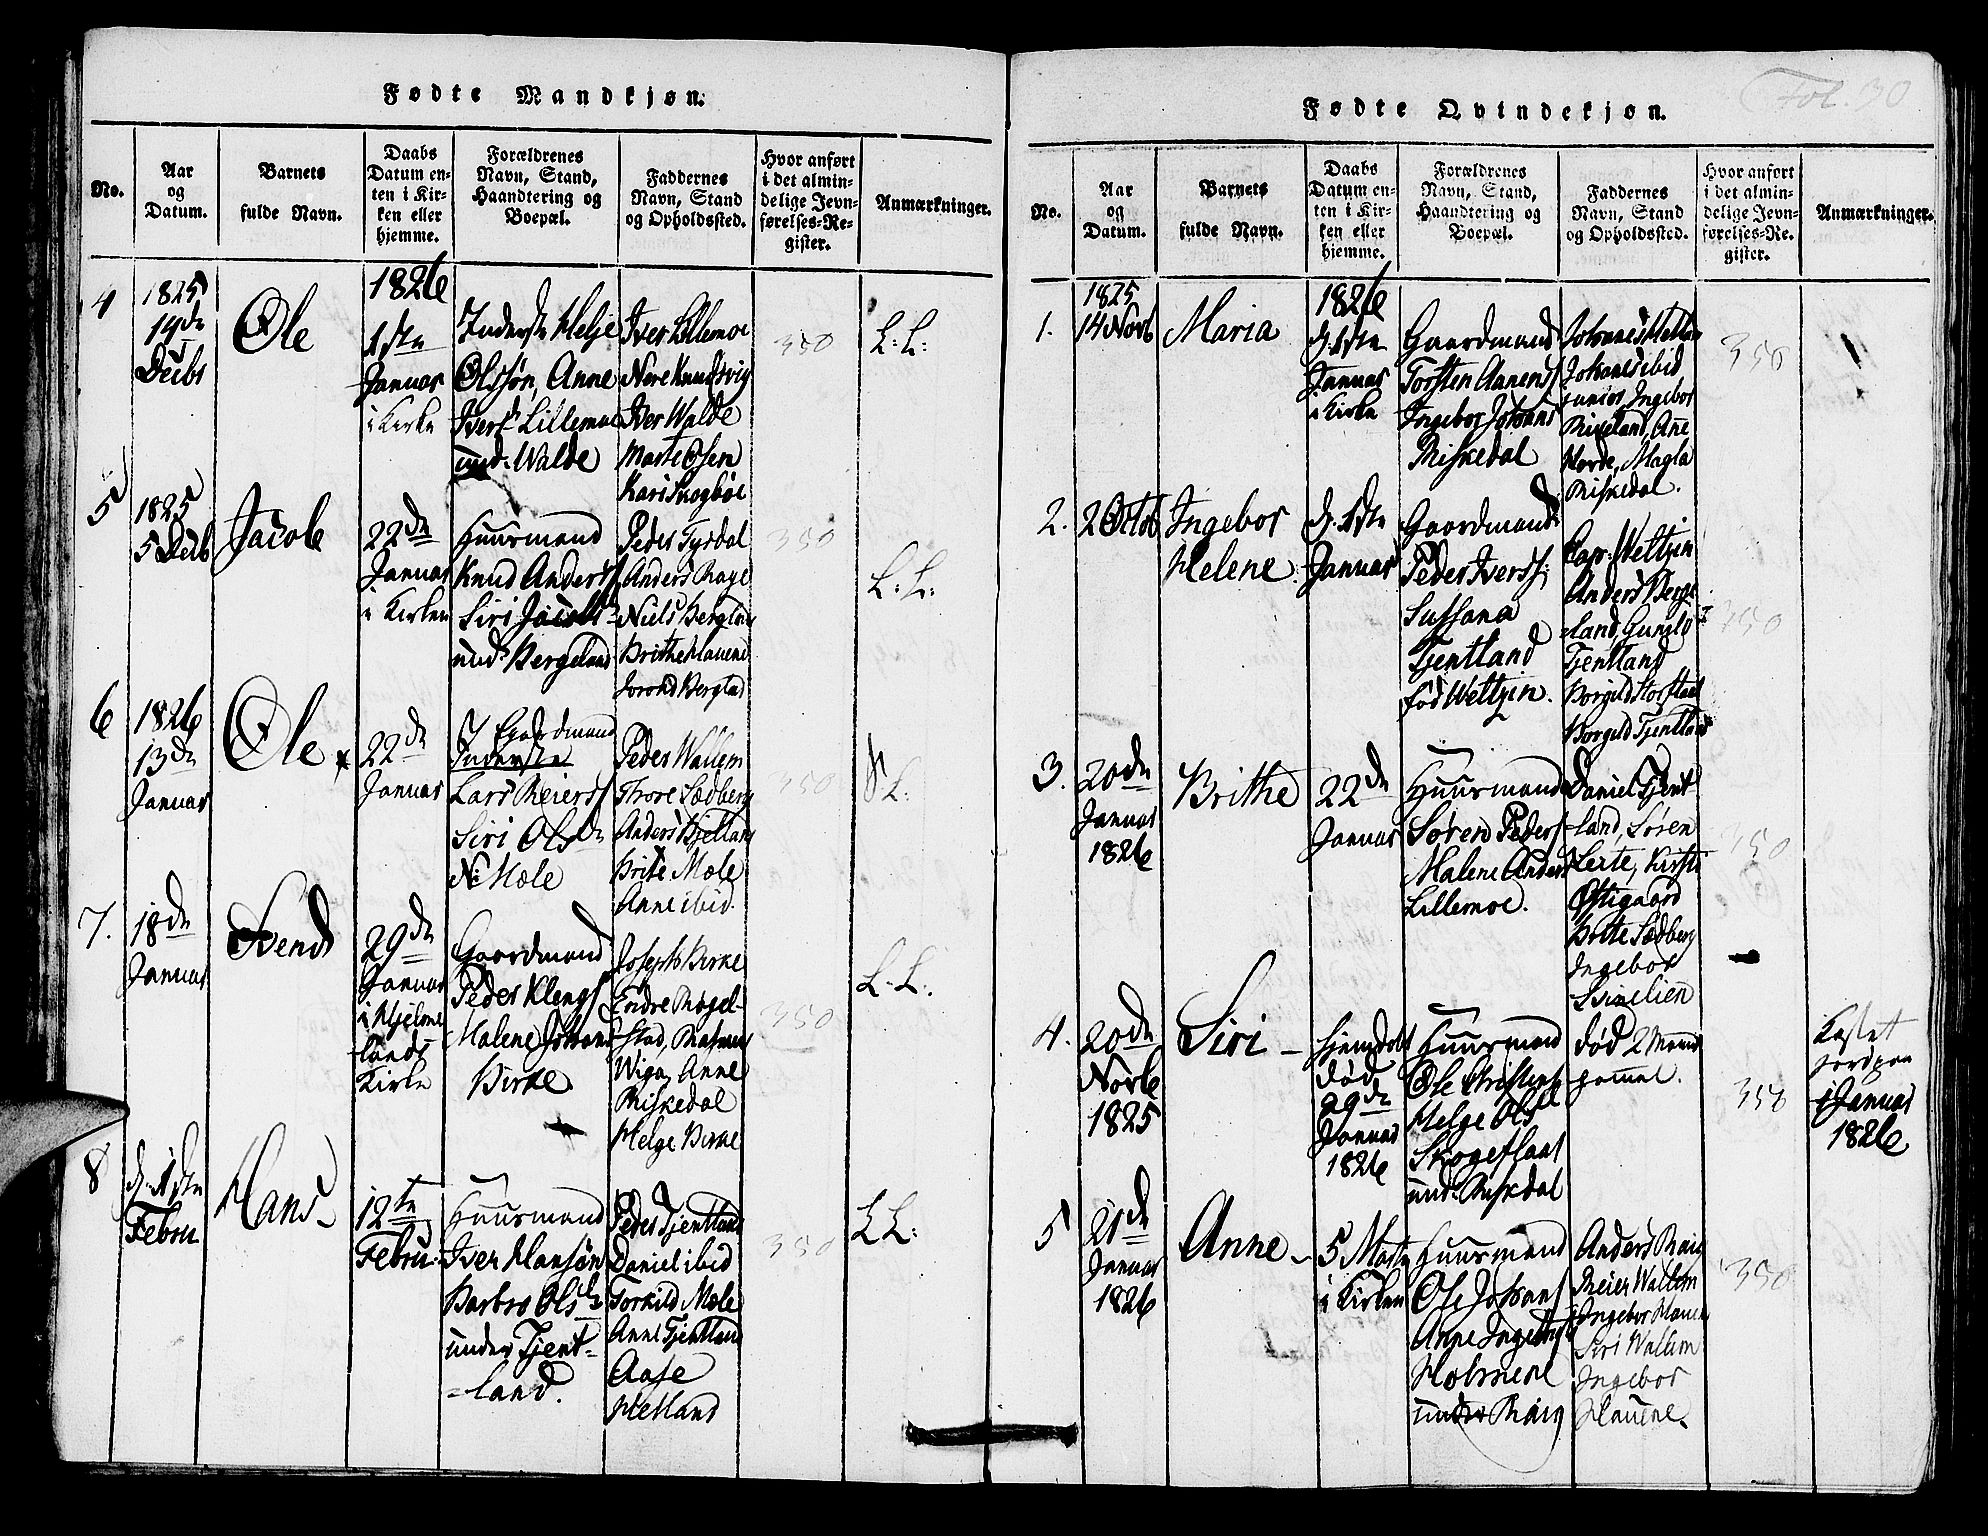 Fødte Mandkjøn.
No.
Aar og Datum.
Barnets fulde Navn.
Daabs Datum enten i Kirken eller hjemme.
Forældrenes Navn, Stand, Haandtering og Boepæl.
Faddernes Navn, Stand og Opholdssted.
Hvor anført i det almindelige Jevnførelses-Register.
Anmærkninger.
4
1825
19de
Decbr
Ole
1826
1ste
Januar
i Kirke
Inderste Helje
Olssøn, Anne
Iversd Lillemoe
und: Walde
Iver Lillemoe
Nere Knudsvig
Iver Walde
Marte Osen
Kari Skogbøe
350
L: L:
5
1825
5 Decb
Jacob
22de
Januar
i Kirken
Huusmand
Knud Anderss
Siri Jacobsd
und: Bergeland
Peder Tysdal
Anders Rage
Niels Bergland
Brithe Hauene
350
L: L:
6
1826
13de
Januar
Ole
22de
Januar
Gaardmand
Inderste
Lars Reierss
Siri Olsd
N: Mæle
Peder Wallem
Thore Sædberg
Anders Hjelland
Brite Mæle
Anne ibid.
350
L:
7.
18de
Januar
Svend
29de
Januar
i Hjelme
land
Kirke
Gaardmand
Peder Klengs
Malene Johans
Birke
Joseph Birke
Endre Røgel-
stad, Rasmus
Wiga, Anne
Riskedal
Helge Birke
350
L. L.
8
d. 1ste
Febru
Hans
12te
Febru
Huusmand
Iver Hansøn
Barbro Olsd
under Tjent=
=land.
Peder Tjentland
Daniel ibid
Torkild Mæle
Anne Tjentland
Aase
Hetland
350
L L:
Fol. 30
Fødte Qvindekjøn.
No.
Aar og Datum.
Barnets fulde Navn.
Daabs Datum enten i Kirken eller hjemme.
Forældrenes Navn, Stand, Haandtering og Boepæl.
Faddernes Navn, Stand og Opholdssted.
Hvor anført i det almindelige Jevnførelses-Register.
Anmærkninger.
1.
1825
14 Novb
Maria
1826
d. 1ste
Januar
i Kirke
Gaardmand
Torsten Aanens
Ingebor Johans
Riskedal
Johanes
Johanes ibid
junior, Ingebor
Riskeland, Ane
Magla
Riskedal.
350
2.
2 Octob
Ingebor
Helene
d. 1ste
Januar
Gaardmand
Peder Iverss:
Sussana
Tjentland
fød Weltzin.
Cap: Weltzin
Anders Berge
=land, Gunild
Tjentland
Borgild Tjentland
350
3.
20de
Januar
1826
Brithe
22de
Januar
Huusmand
Søren Peders
Malene Anders
Lillemoe.
Daniel Tjent
=land, Søren
Leite, Kirsti
Østigaard
Brite Sædberg
Ingebor
Svinelien
350
4.
20de
Novbr
1825
Siri
hjemdøbt
død
29de
Januar
1826
Huusmand
Ole Kristens
Helge Olsd
Skogeflaat
und: Riskdal
død 2 Maaned
gammel.
350
Kastet
Jord paa
1 Januar
1826
5
21de
Januar
1826
Anne
5 Marts
i Kirken
Huusmand
Ole Johans
Anne Ingebrigtsd
Holmene
under Raig
Anders Raig
Reier Wallem
Ingebor Hauene
Siri Wallem
Ingebor
Hauene.
350